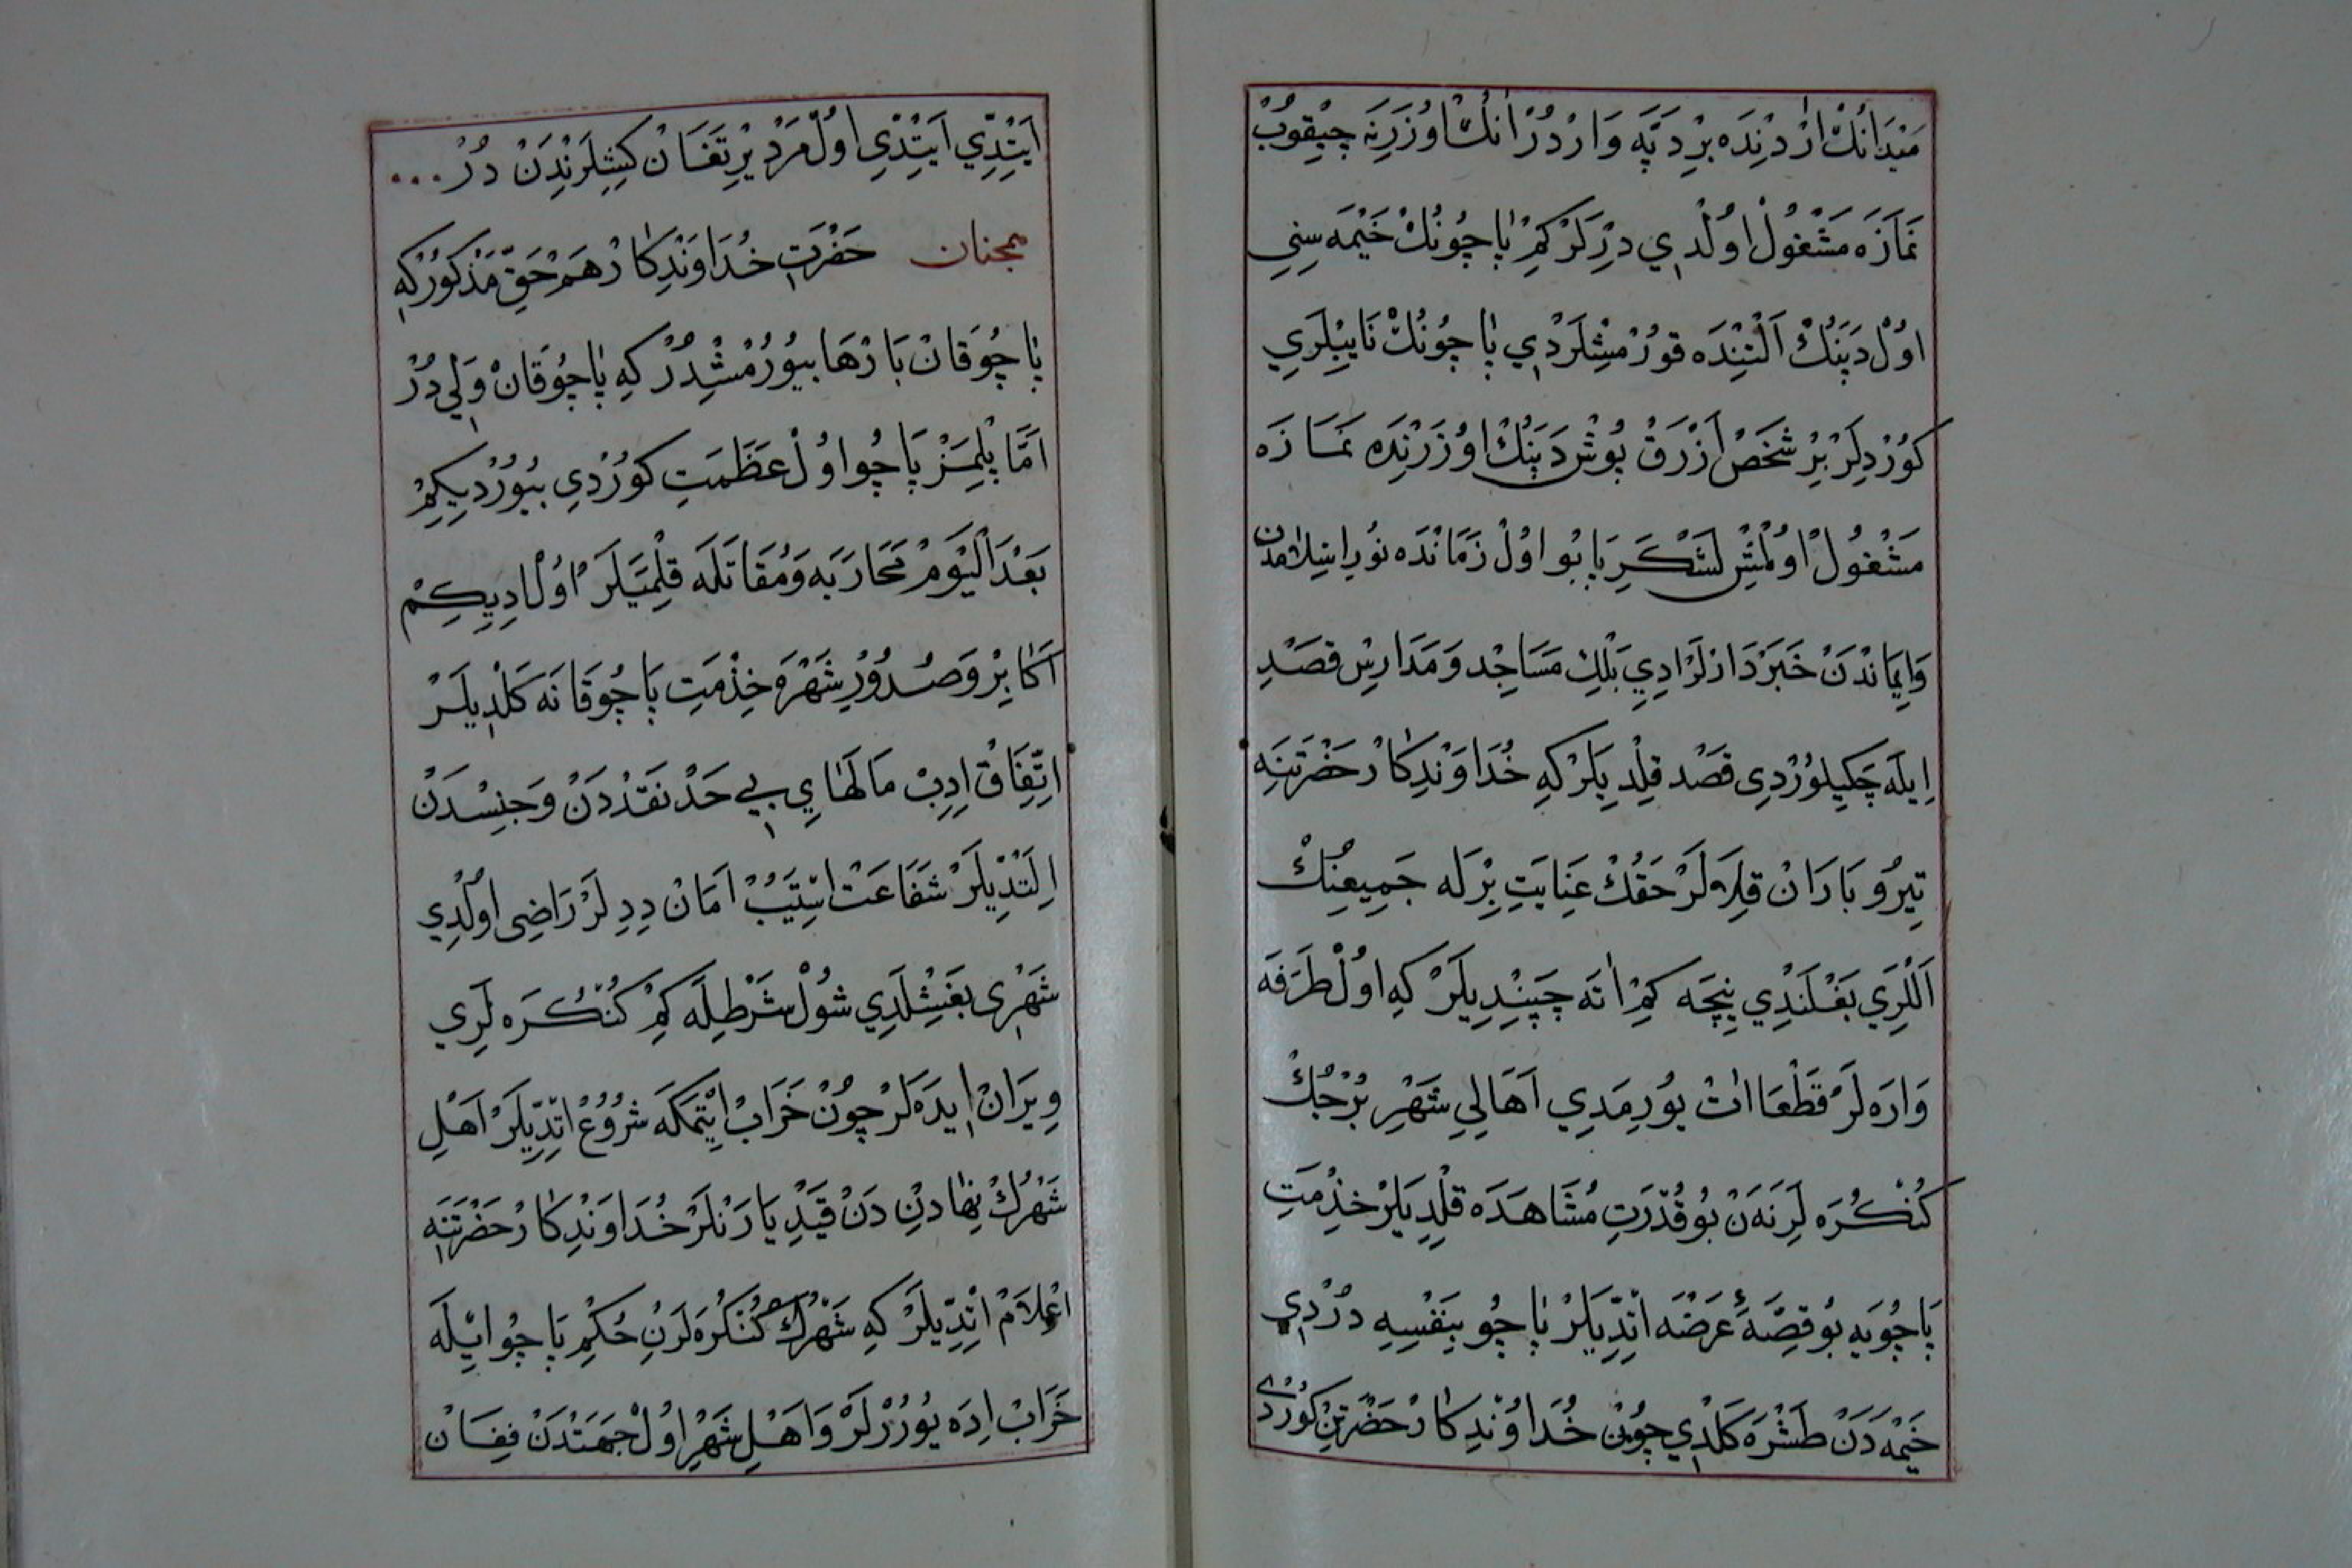 مَيْدَانُكْ اَرْدِنْدَه بِرْ دَپَه وَارْدُرْ اَنُكْ اوُزَرِنَه چِيْقُوبْ
نَمَازَه مَشْغُولْ اوُلْدِي دِرْلَرْكِمْ بَاچُونُكْ خَيْمَه سِنِي
اوُلْ دَپَنُكْ اَلْتِنْدَه قُورْمِشْلَرْدِي بَاچُونُكْ نَايِبْلَرِي
كُورْدِلَرْ بِرْ شَخْصْ اَزْرَقْ پُوشْ دَپَنُكْ اوُزَرِنْدَه نَمَازَه
مَشْغُولْ اوُلْمِشْ لَشْكَرِ بَابُو اوُلْ زَمَانْدَه نُورِ اِسْلَامْدَن
وَاِيمَانْدَنْ خَبَرْدَارْ لَرْ اِدِي بَلْكِ مَسَاجِد وَمَدَارِسْ قَصْدِ
اِيلَه چَكِيلُورْدِي قَصْد قِلْدِيلَرْ كِه خُدَاوَنْدِكَارْ حَضْرَتِنَه
تِيرُو بَارَانْ قِلَه لَرْ حَقُكْ عِنَايَتِ بِرْلَه جَمِيعِنُكْ
اَلْلَرِي بَغْلَنْدِي نِيچَه كِمْ اَتَه چَپِنْدِيلَرْ كِه اوُلْ طَرَفَه
وَارَه لَرْ قَطْعَا اَتْ يُورِمَدِي اَهَالِي شَهْرِ بُرْجُكْ
كُنْكُرَه لَرِنْدَنْ بُو قُدْرَتِ مُشَاهَدَه قِلْدِيلَرْ خِدْمَتِ
بَاچُويَه بُو قِصَّهٔ عَرْضَه اِتْدِيلَرْ بَاچُو بِنَفْسِهِ دُرْدِي
خَيْمَه دَنْ طَشْرَه كَلْدِي چُونْ خُدَاوَنْدِكَارْ حَضْرَتِنْ كُورْدِي
اَيِتْدِي اَيِتْدِي اوُلْ مَرْدْ يَرِتْغَانْ كِشِلَرِنْدَنْ دُرْ . . .
همچنان حَضْرَتِ خُدَاوَنْدِكَارْ هَمْ حَقِّ مَذْكُورْ كِه
بَاچُوقَانْ بَارْهَا بيُورْمُشْدُرْ كِه بَاچُوقَانْ وَلِي دُرْ
اَمَّا بِلْمِزْ بَاچُو اوُلْ عَظَمَتِ كُورْدِي بيُورْدِيكِمْ
بَعْدَ الْيَوْمْ مُحَارَبَه وَمُقَاتَلَه قِلْمَيَلَرْ اوُلْ اِدِيكِمْ
اَكَابِرْ وَصُدُورِ شَهْرْ خِذْمَتِ بَاچُوقَانَه كَلْدِيلَرْ
اِتِّفَاقْ اِدِبْ مَالْهَايِ بِي حَدْ نَقْدْدَنْ وَجِنِسْدَنْ
اِلَتْدِيلَرْ شَفَاعَتْ اِسْتَيُبْ اَمَانْ دِدِلَرْ رَاضِي اوُلْدِي
شَهْرِي بَغِشْلَدِي شُولْ شَرْطِلَه كِمْ كُنْكُرَه لَرِي
وِيرَانْ اِيدَه لَرْ چُونْ خَرَابْ اِيْتْمَكَه شُرُوعْ اِتْدِيلَرْ اَهْلِ
شَهْرُكْ نِهَادِنْ دَنْ قَيْدِ يَارَنْلَرْ خُدَاوَنْدِكَارْ حَضْرَتِنَه
اِعْلَامْ اِتْدِيلَرْ كِه شَهْرُكْ كُنْكُرَه لَرِنْ حُكْمِ بَاچُو اِيلَه
خَرَابْ اِدَه يُورُرْلَرْ وَاهْلِ شَهْرْ اوُلْ جَهَتْدَنْ فِغَانْ